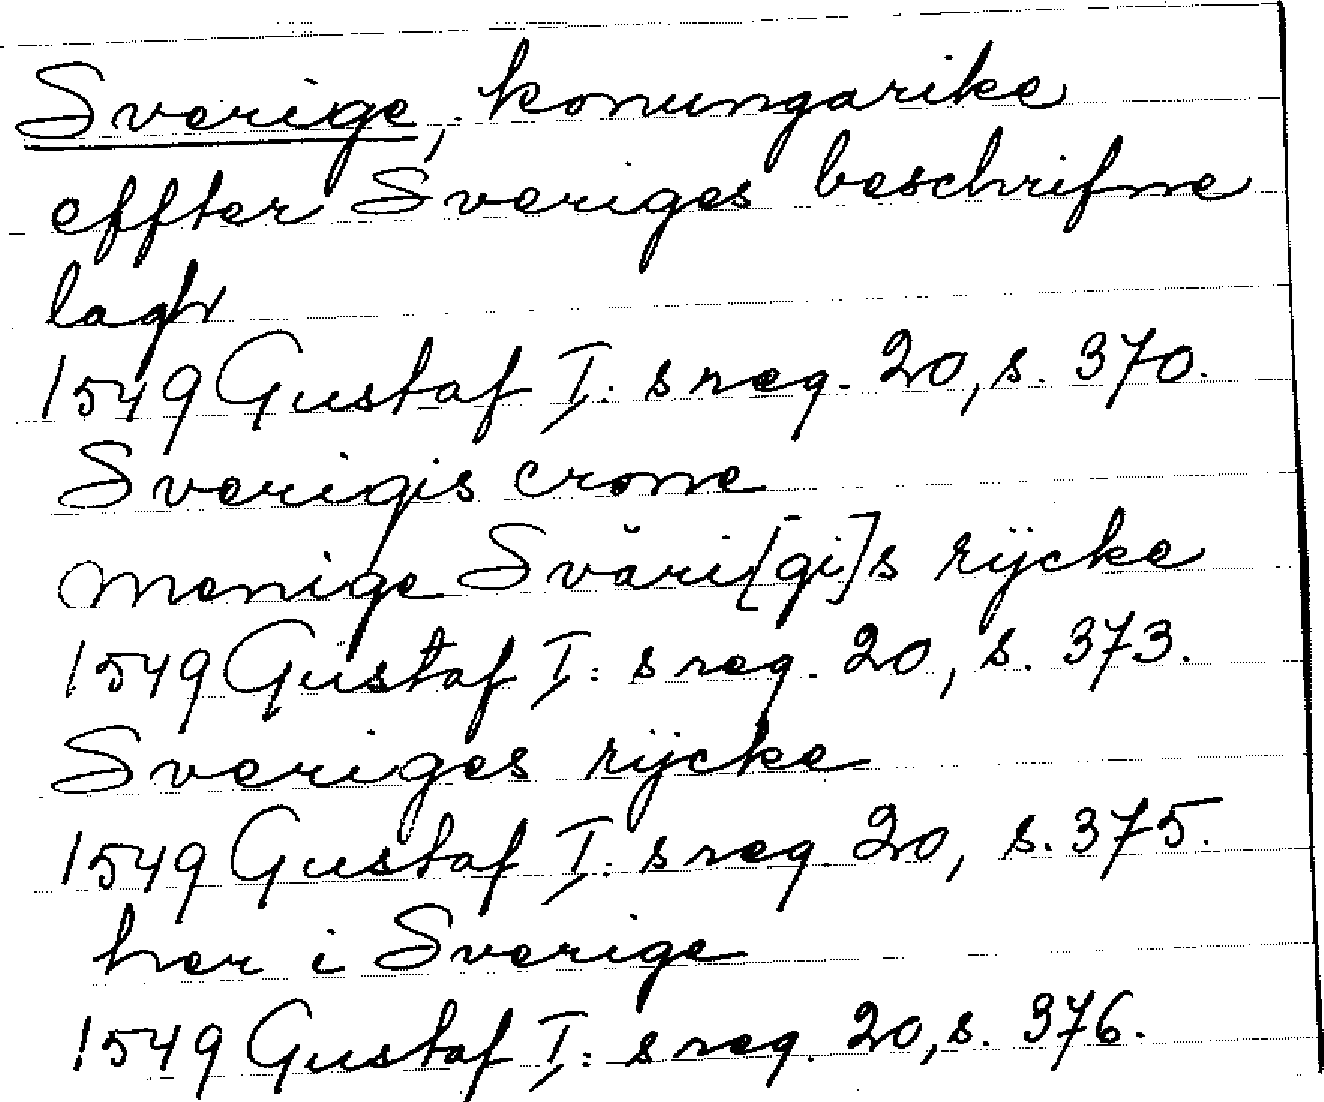 Sverige, konungarike
effter Sveriges beschrifne
lagh
1549 Gustaf I: s reg. 20, s. 370.
Sverigis crone
menige Sväri[gi]s rijcke
1549 Gustaf I: s reg. 20, s. 373.
Sveriges rijcke
1549 Gustaf I: s reg. 20, s. 375.
her i Sverige
1549 Gustaf I: s reg. 20, s. 376.